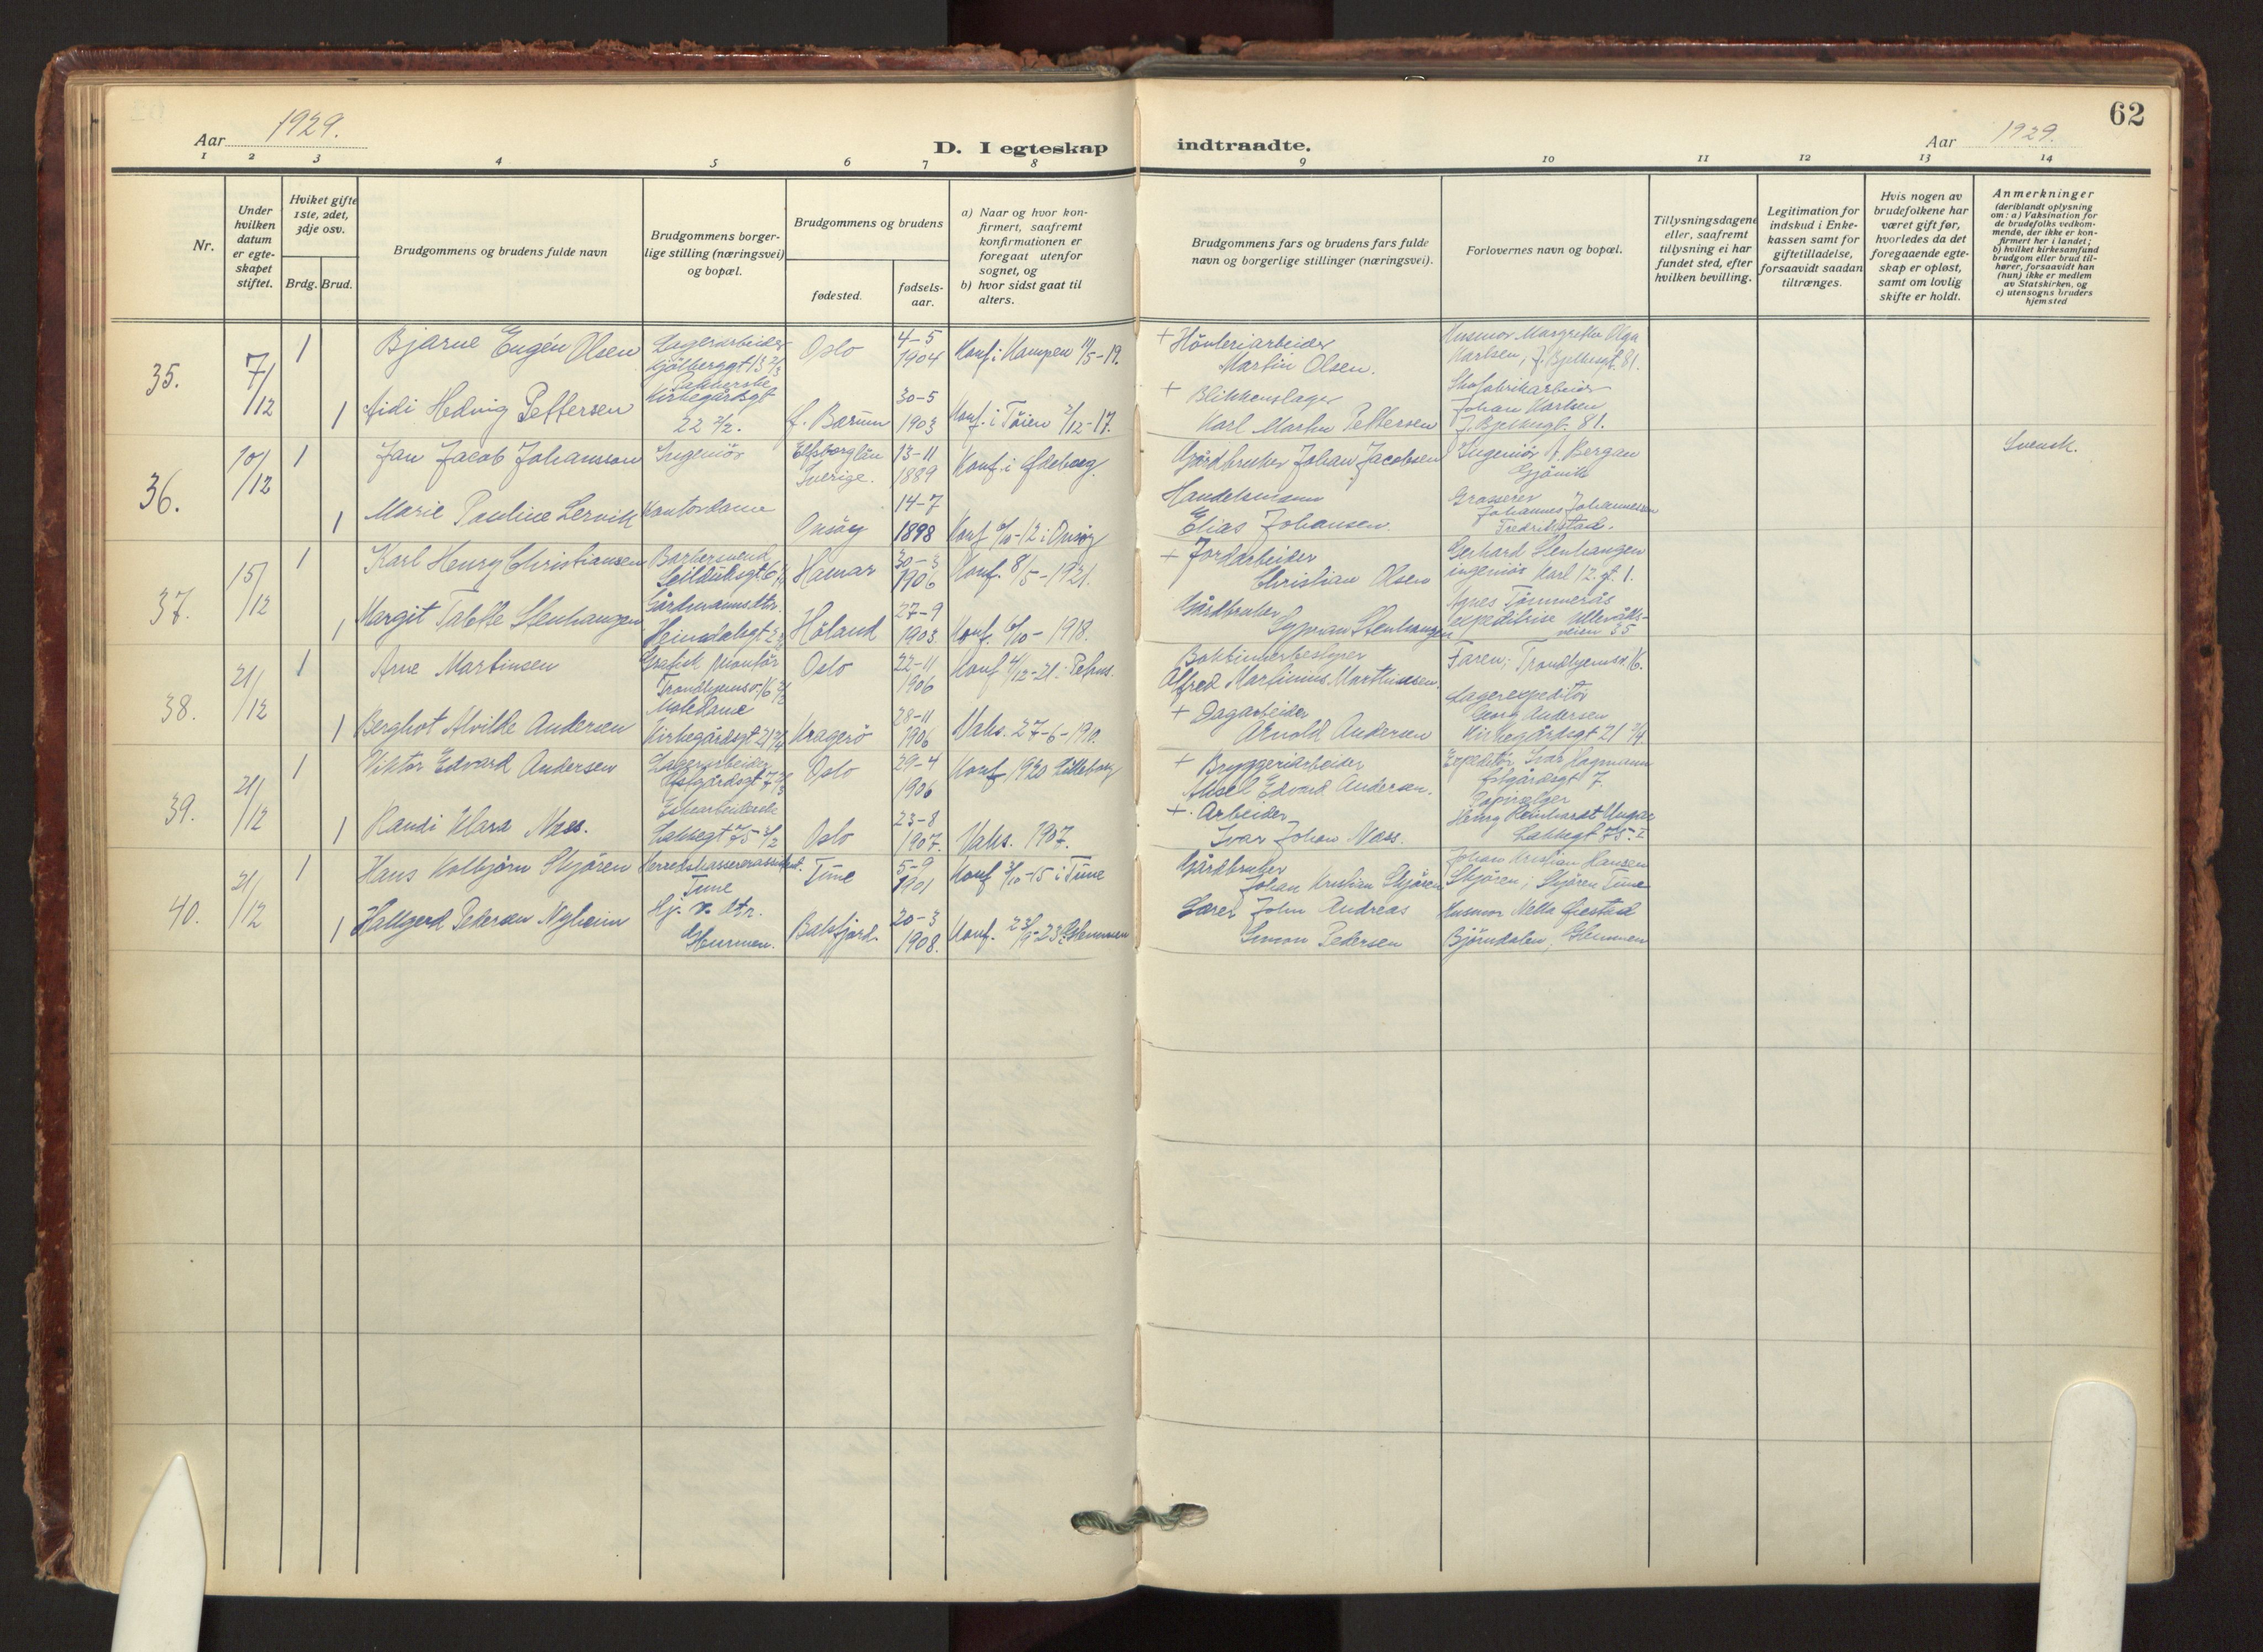 62
Aar 1929.
D. I egteskap indtraadte.
Aar 1929.
1 2 3 4 5 6 7 8 9 10 11 12 13 14
Nr.
Under hvilken datum er egteskapet stiftet.
Hviket gifte 1ste, 2det, 3dje osv.
Brdg. Brud.
Brudgommens og brudens fulde navn
Brudgommens borgerlige stilling (næringsvei) og bopæl.
Brudgommens og brudens
fødested.
fødselsaar.
a) Naar og hvor konfirmert, saafremt konfirmationen er foregaat utenfor sognet, og
b) hvor sidst gaat til alters.
Brudgommens fars og brudens fars fulde navn og borgerlige stillinger (næringsvei).
Forlovernes navn og bopæl.
Tillysningsdagene eller, saafremt tillysning ei har fundet sted, efter hvilken bevilling.
Legitimation for indskud i Enkekassen samt for giftetilladelse, forsaavidt saadan tiltrænges.
Hvis nogen av brudefolkene har været gift før, hvorledes da det foregaaende egteskap er opløst, samt om lovlig skifte er holdt.
Anmerkninger
(deriblandt oplysning om: a) Vaksination for de brudefolks vedkommende, der ikke er konfirmert her i landet; b) hvilket kirkesamfund brudgom eller brud tilhører, forsaavidt han (hun) ikke er medlem av Statskirken, og c) utensogns bruders hjemsted
35. 7/12 1 Bjarne Eugén Olsen Lagerarbeider Oslo 4-5 1904 Konf. i Kampen 11/5-19. + Høvleriarbeider Martin Olsen. Husmor Margrethe Olga Karlsen, J. Bjelkesgt. 81.
1 Hedvig Pettersen Kirkegårdsgt 22 2/2. f. Bærum 30-5 1903 Konf. i Tøien 2/12-17. + Blikkenslager Karl Martin Pettersen Skofabrikarbeider Johan Karlsen J. Bjelkesgt. 81.
36. 10/12 1 Jan Jacob Johansson Ingeniør Elfsborglän Sverige. 13-11 1889 Konf. i Gårdbruker Johan Jacobsen Ingeniør A. Bergan Gjøvik Svensk.
1 Marie Pauline Lervik Kontordame Onsøy 14-7 1898 Konf 6/10-12 i Onsøy Handelsmann Elias Johansen Grosserer Johannes Johannessen Fredrikstad.
37. 15/12 1 Karl Henry Christiansen Barbersvend Seilduksgt. 6 Hamar 30-3 1906 Konf. 8/5-1921. + Jordarbeider Christian Olsen Gerhard Stenhaugen ingeniør Karl 12. gt. 1.
1 Margit Stenhaugen Gårdmannsdtr. Heimdalsgt Høland 27-9 1903 Konf. 6/10-1918. Gårdbruker Cyprian Stenhaugen Agnes Tømmerås expeditrise Ullevålsveien 35
38. 21/12 1 Arne Martinsen Grafisk montør Trondhjemsv. 16 Oslo 22-11 1906 Konf 4/12-21 i Petrus. Alfred Martinius Martinsen. Faren; Trondhjemsv. 16.
1 Berghot Alvilde Andersen Kirkegårdsgt 21 Kragerø 28-11 1906 Vaks. 27-6-1910. + Dagarbeider Arnold Andersen Lagerexpeditør Georg Andersen Kirkegårdsgt 21
39. 21/12 1 Viktor Edvard Andersen Lagerarbeider Oslo 29-4 1906 Konf 1920 Lilleborg + Bryggeriarbeider Aksel Edvard Andersen. Expeditør Ivar Hagmann 7.
1 Randi Klara Næss. Lakkegt 75 Oslo 23-8 1907. Vaks. 1907. + Arbeider Ivar Johan Næss. Henry Reinhardt Lakkegt 75.
40. 21/12 1 Hans Kolbjørn Skjøren Herredskassererassistent. Tune Tune 5-9 1901 Konf 3/10-15 i Tune Gårdbruker Johan Kristian Skjøren Johan Kristian Hansen Skjøren; Skjøren Tune
1 Hallgerd Pedersen Nyheim Hj. v. dtr. Glemmen. Balsfjord 20-3 1908. Konf. 23/9-23 i Glemmen Lærer John Andreas Simon Pedersen Husmor Bjørndalen, Glemmen